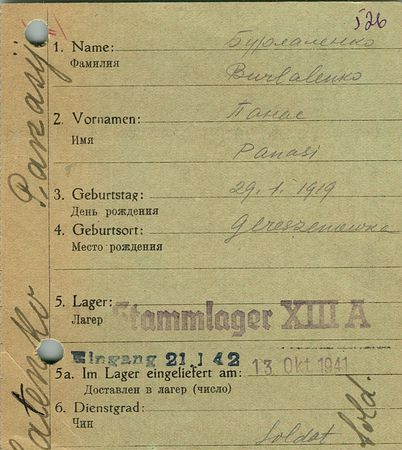 i26
1. Name: Бурлаленко
Фамилия Burlalenko
2. Vornamen: Панас
Имя
Panasi
3. Geburtstag: 29. 1. 1919
День рождения
4. Geburtsort: Gereszenowka
Место рождения
5. Lager: Stammlager XIII A
Лагер
Eingang 21 1 42 13. Okt 1941
5a. Im Lager eingeliefert am:
Доставлен в лагер (число)
6. Dienstgrad:
Чин Soldat
Sold.
Panasij